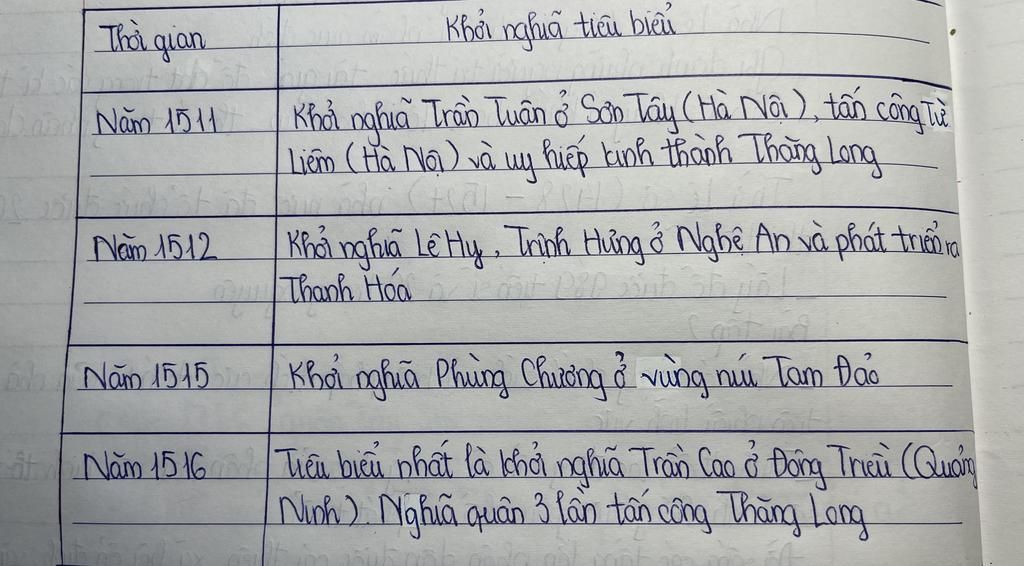 Thời gian
Khởi nghĩa tiêu biểu
Năm 1511
Khởi nghĩa Trần Tuân ở Sơn Tây (Hà Nội), tấn công Từ
Liêm (Hà Nội) và uy hiếp kinh thành Thăng Long
Năm 1512
Khởi nghĩa Lê Hy, Trịnh Hưng ở Nghệ An và phát triển ra
Thanh Hóa
Năm 1515
Khởi nghĩa Phùng Chương ở vùng núi Tam Đảo
Năm 1516
Tiêu biểu nhất là khởi nghĩa Trần Cao ở Đông Triều (Quảng
Ninh). Nghĩa quân 3 lần tấn công Thăng Long